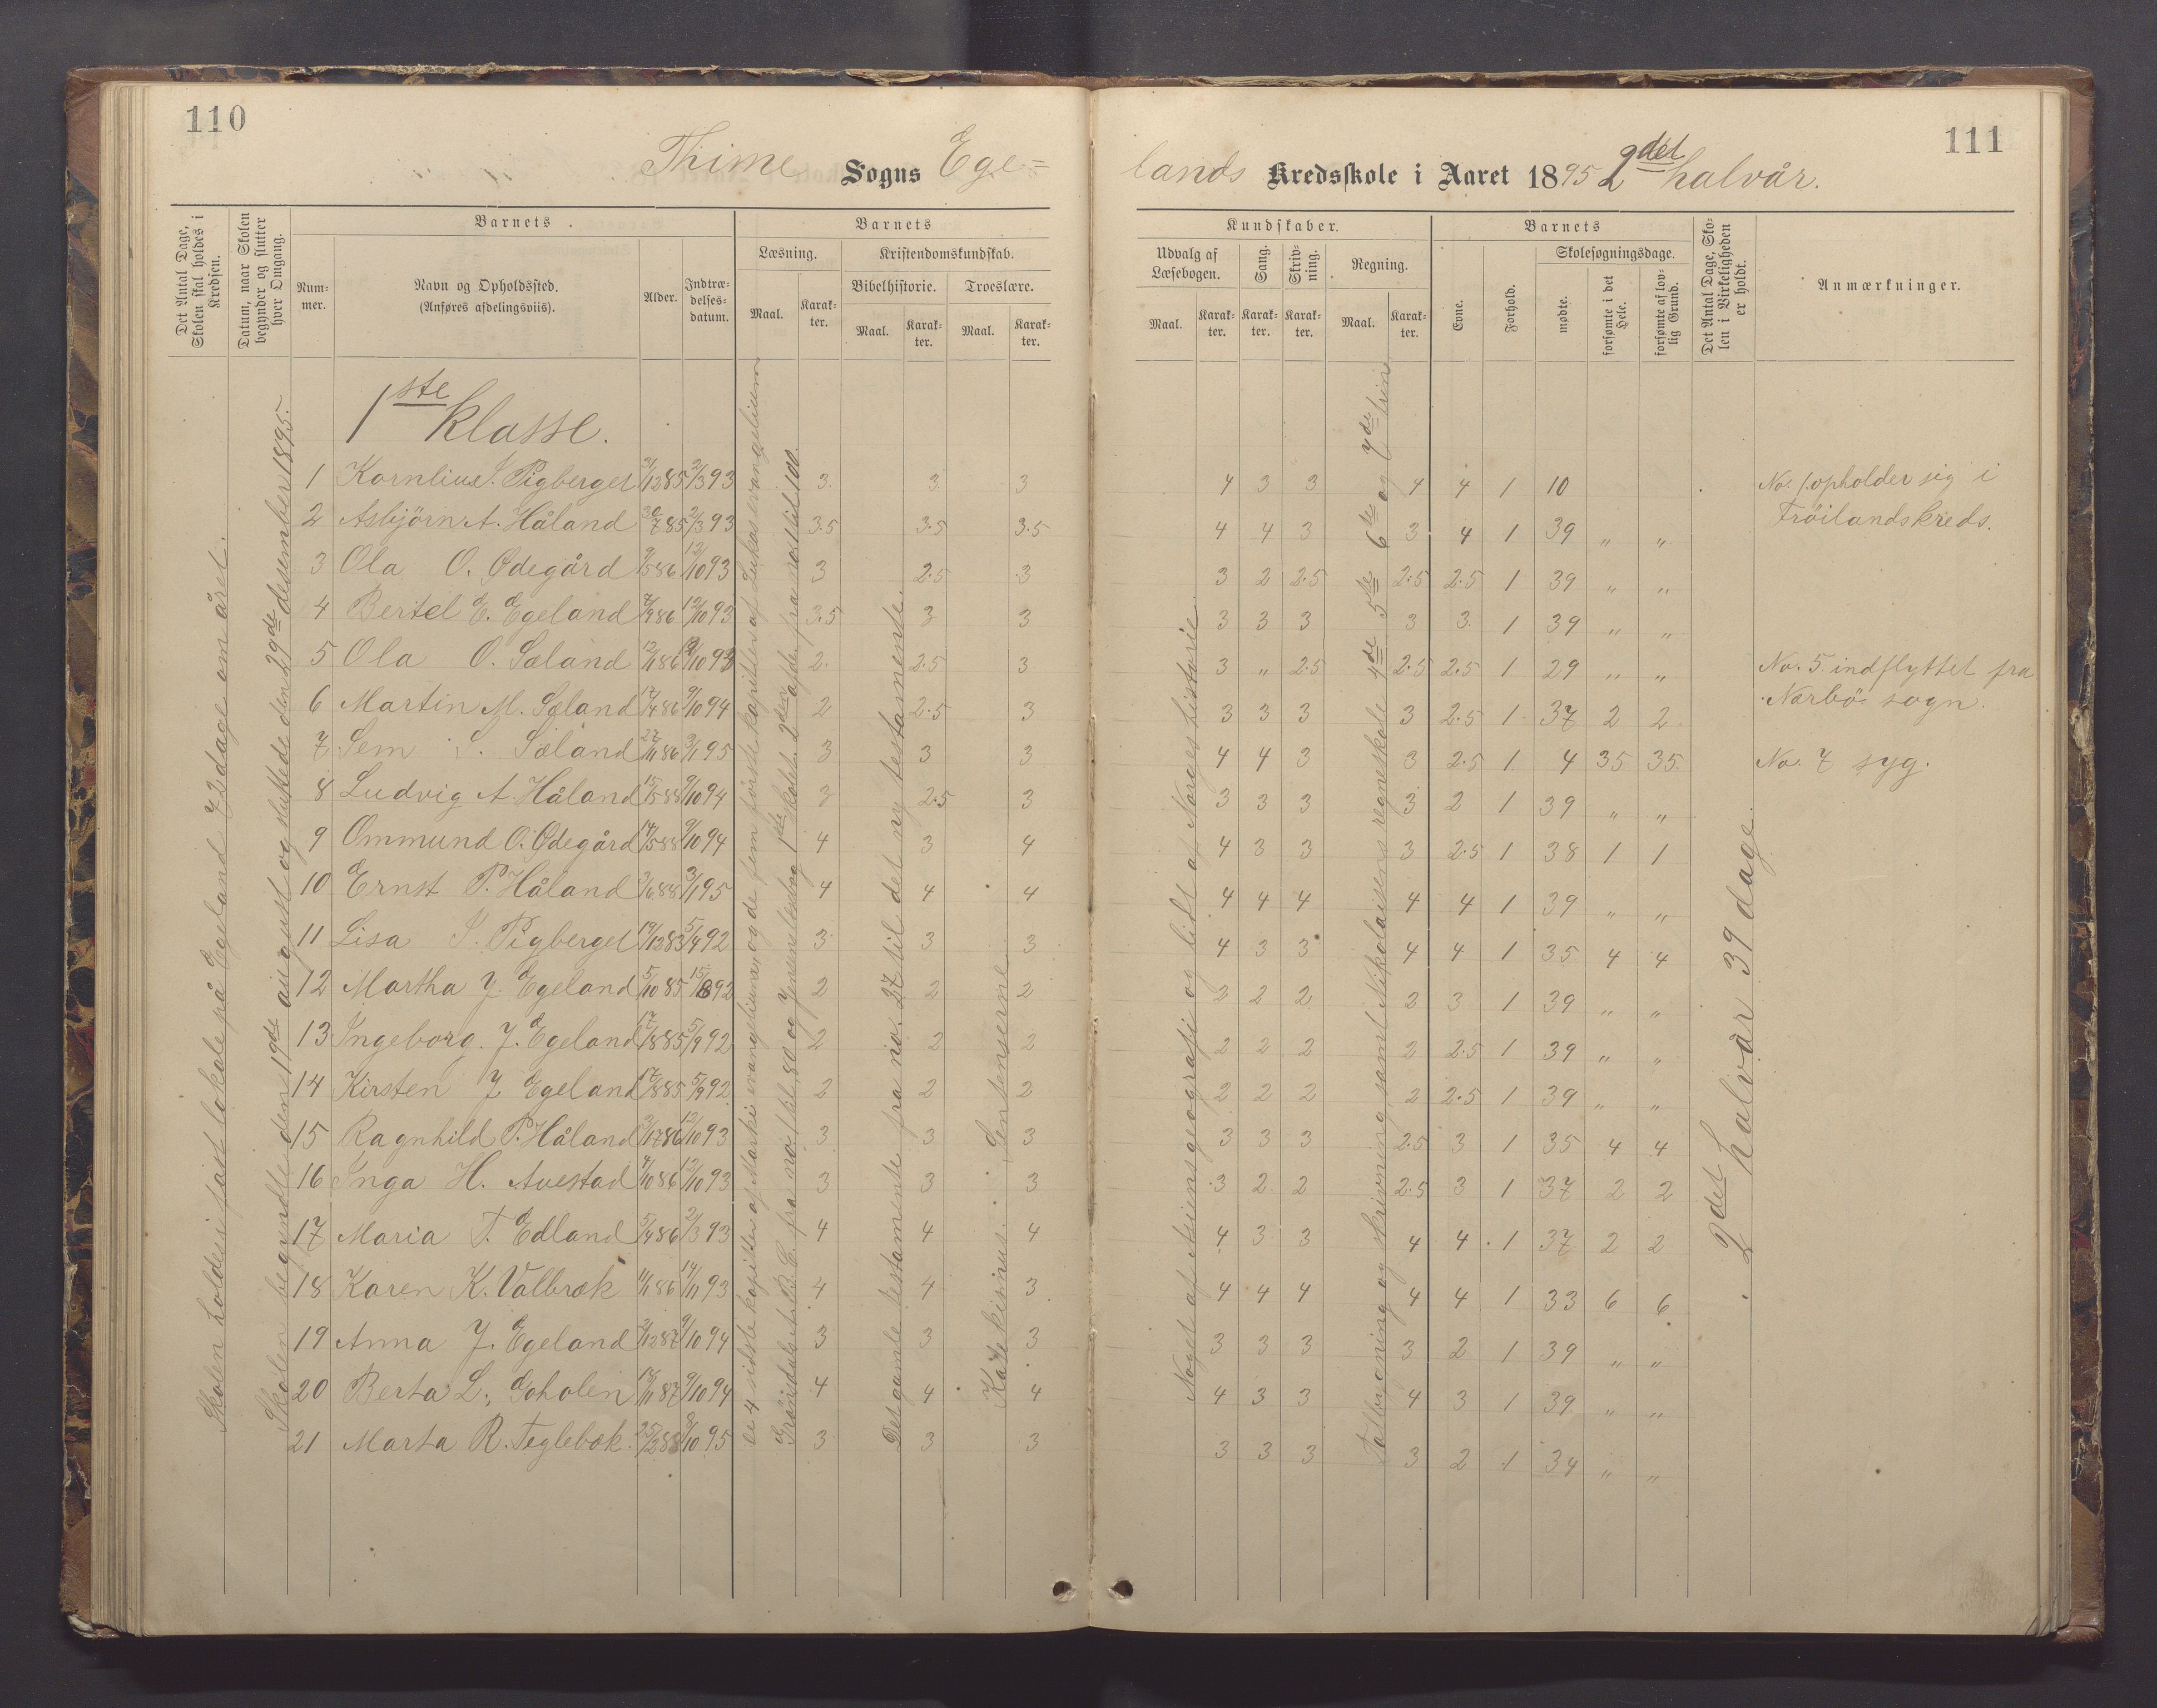 110
Thime Sogns Ege=
Det Antal Dage, Skolen skal holdes i Kredsen.
Datum, naar Skolen begynder og slutter hver Omgang.
Barnets
Nummer.
Navn og Opholdssted.
(Anføres afdelingsviis).
Alder.
Indtrædelsesdatum.
Barnets
Læsning.
Maal.
Karakter.
Kristendomskundskab.
Bibelhistorie.
Maal.
Karakter.
Troeslære.
Maal.
Karakter.
Skolen holdes i fast lokale på Egeland 72 dage om året.
Skolen begyndte den 19de august og sluttede den 29de desember 1895.
de 4 sidste kapitler af Marki evangelium, og de fem første kapitler af Lukas evangelium
B. E. fra no. 1 til 80 og Jensens læsebog 1ste skolet. 2den afd. fra no. 1 til 100
Det gamle testamente fra no. 27 til det ny testamente.
Katekismus. Sentenserne
1ste klasse.
1 Kornlius S. Pigberget 31/12 85 2/3 93 3 3 3
2 Asbjörn A. Håland 30/7 85 2/3 93 3.5 3.5 3.5
3 Ola O. Ødegård 9/5 86 12/10 93 3 2.5 3
4 Bertel E. Egeland 7/9 86 12/10 93 3.5 3 3
5 Ola O. Sæland 12/11 86 12/10 93 2 2.5 3
6 Martin M. Sæland 17/4 86 9/10 94 2 2.5 3
7 Sem S. Sæland 27/11 86 3/1 95 3 3 3
8 Ludvig A. Håland 15/5 88 9/10 94 3 2.5 3
9 Ommund O. Ødegård 14/5 88 9/10 94 4 3 4
10 Ernst P. Håland 3/6 88 3/1 95 4 4 4
11 Lisa S. Pigberget 19/12 83 5/4 92 3 3 3
12 Martha J. Egeland 5/10 85 15/8 92 2 2 2
13 Ingeborg J. Egeland 17/8 85 5/9 92 2 2 2
14 Kirsten J. Egeland 17/8 85 5/9 92 2 2 2
15 Ragnhild P. Håland 3/7 86 12/10 93 3 3 3
16 Inga H. Auestad 4/10 86 12/10 93 3 3 3
17 Maria T. Edland 5/4 86 2/3 93 4 4 4
18 Karen K. Valbræk 1/1 86 14/11 93 4 4 3
19 Anna J. Egeland 3/12 87 9/10 94 3 3 3
20 Berta L. Goholen 16/11 87 9/10 94 4 4 4
21 Marta R. Teglebæk 25/2 88 8/10 95 3 3 3
111
lands Kredsskole i Aaret 1895 2det halvår.
Kundskaber.
Udvalg af Læsebogen.
Maal.
Karakter.
Sang.
Karakter.
Skrivning.
Karakter.
Regning.
Maal.
Karakter.
Barnets
Evne.
Forhold.
Skolesøgningsdage.
mødte.
forsømte i det Hele.
forsømte af lovlig Grund.
Det Antal Dage, Skolen i Virkeligheden er holdt.
Anmærkninger.
Noget af Asiens geografi og lidt af Norges historie.
Talbygning og skrivning samt Nikolaisens regneskole 4de 5te 6te og 7de trin
2det halvår 39 dage.
4 3 3 4 4 1 10 No. 1 opholder sig i
4 4 3 3 4 1 39 " " Fröilands kreds.
3 2 2.5 2.5 2.5 1 39 " "
3 3 3 3 3 1 39 " "
3 " 2.5 2.5 2.5 1 29 " " No. 5 indflyttet fra
3 3 3 3 2.5 1 37 2 2 Nærbö sogn.
4 4 3 3 2.5 1 4 35 35 No. 7 syg.
3 3 3 3 2 1 39 " "
4 3 3 3 2.5 1 38 1 1
4 4 4 4 4 1 39 " "
4 3 3 4 4 1 35 4 4
2 2 2 2 3 1 39 " "
2 2 2 2 2.5 1 39 " "
2 2 2 2 2.5 1 39 " "
3 3 3 2.5 3 1 35 4 4
3 2 2 2.5 3 1 37 2 2
4 3 3 4 4 1 37 2 2
4 4 4 4 4 1 33 6 6
3 3 3 3 2 1 39 " "
4 3 3 4 3 1 39 " "
3 3 3 3 2 1 34 " "